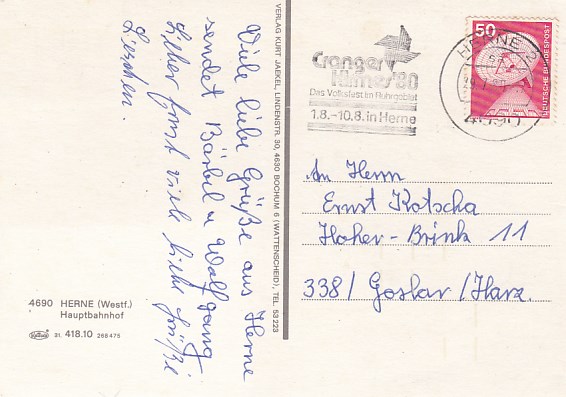 Viele liebe Grüße aus Herne
sendet Bärbel u Wolfgang
viele liebe Grüße
Lieschen.
4690 HERNE (Westf.)
Hauptbahnhof
31. 418.10 268475
VERLAG KURT JAEKEL, LINDENSTR. 30, 4630 BOCHUM 6 (WATTENSCHEID), TEL. 53 223
Cranger
Kirmes '80
Das Volksfest im Ruhrgebiet
1.8.–10.8. in Herne
HERNE 2
4690
50
DEUTSCHE BUNDESPOST
An Herrn
Ernst Kotscha
Hoher-Brink 11
338/ Goslar/Harz.